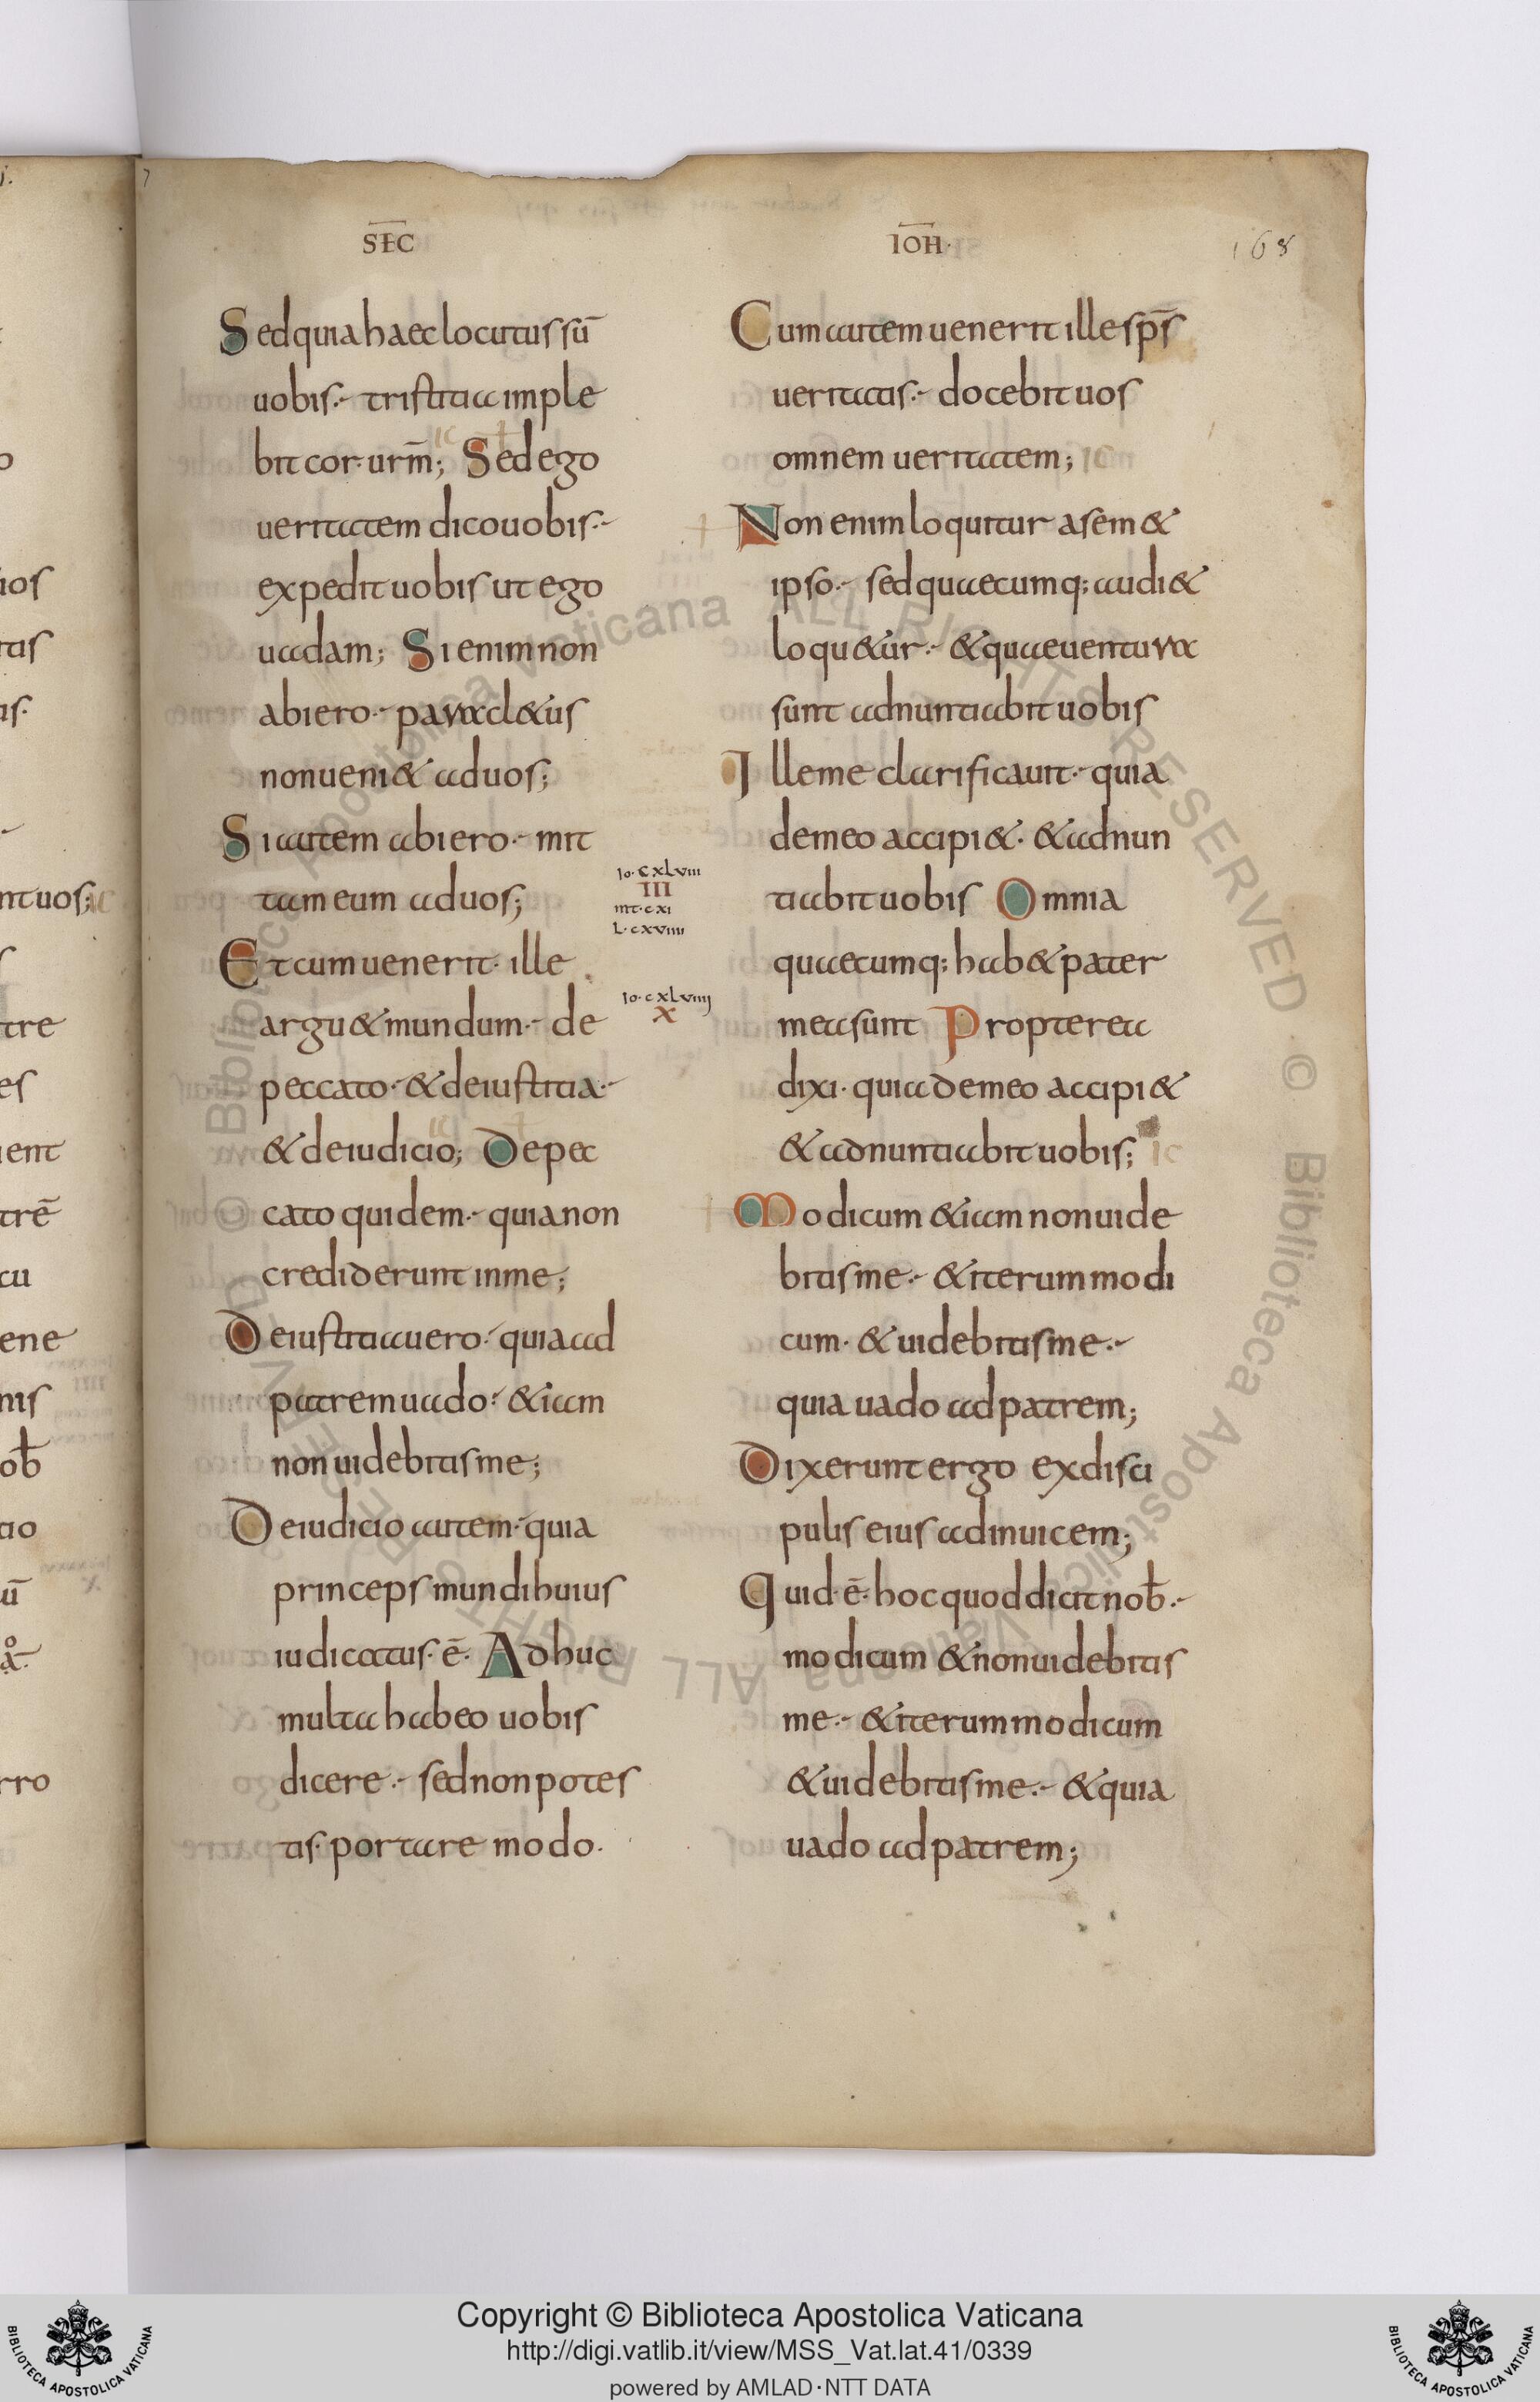 SEC̄
IOH̄·
168
Sed quia haec locutus sū
uobis·- tristitia imple
bit cor· urm̄; Sed ego
ueritatem dico uobis·-
expedit uobis ut ego
uadam; Si enim non
abiero·- paracl&us
non ueni& ad uos;
Si autem abiero·- mit
tam eum ad uos;
Io·CXLVIII
III
mt·cxi
L·cxviiii
Et cum uenerit· ille
argu& mundum·- de
Io·cxlviiii
X
peccato·- & de iustitia·-
& de iudicio; De pec
cato quidem·- quia non
crediderunt in me;
De iustitia uero·- quia ad
patrem uado·- & iam
non uidebitis me;
De iudicio autem·- quia
princeps mundi huius
iudicatus· ē· Adhuc
multa habeo uobis
dicere·- sed non potes
tis· portare modo·
Cum autem uenerit ille sp̄s
ueritatis·- docebit uos
omnem ueritatem;
Non enim loquitur a sem&
ipso·- sed quaecumq; audi&
loqu&ur·- & quae uentura
sunt adnuntiabit uobis
Ille me clarificauit·- quia
de meo accipi&· & adnun
tiabit uobis Omnia
quaecumq; hab& pater
mea sunt Propterea
dixi· quia de meo accipi&
& adnuntiabit uobis;
Modicum & iam non uide
bitis me·- & iterum modi
cum· & uidebitis me·-
quia uado ad patrem;
Dixerunt ergo ex disci
pulis eius ad inuicem;
Quid· ē· hoc quod dicit nob̄·-
modicum & non uidebitis
me·- & iterum modicum
& uidebitis me·- & quia
uado ad patrem;
Copyright © Biblioteca Apostolica Vaticana
http://digi.vatlib.it/view/MSS_Vat.lat.41/0339
powered by AMLAD·NTT DATA
BIBLIOTECA APOSTOLICA VATICANA
BIBLIOTECA APOSTOLICA VATICANA